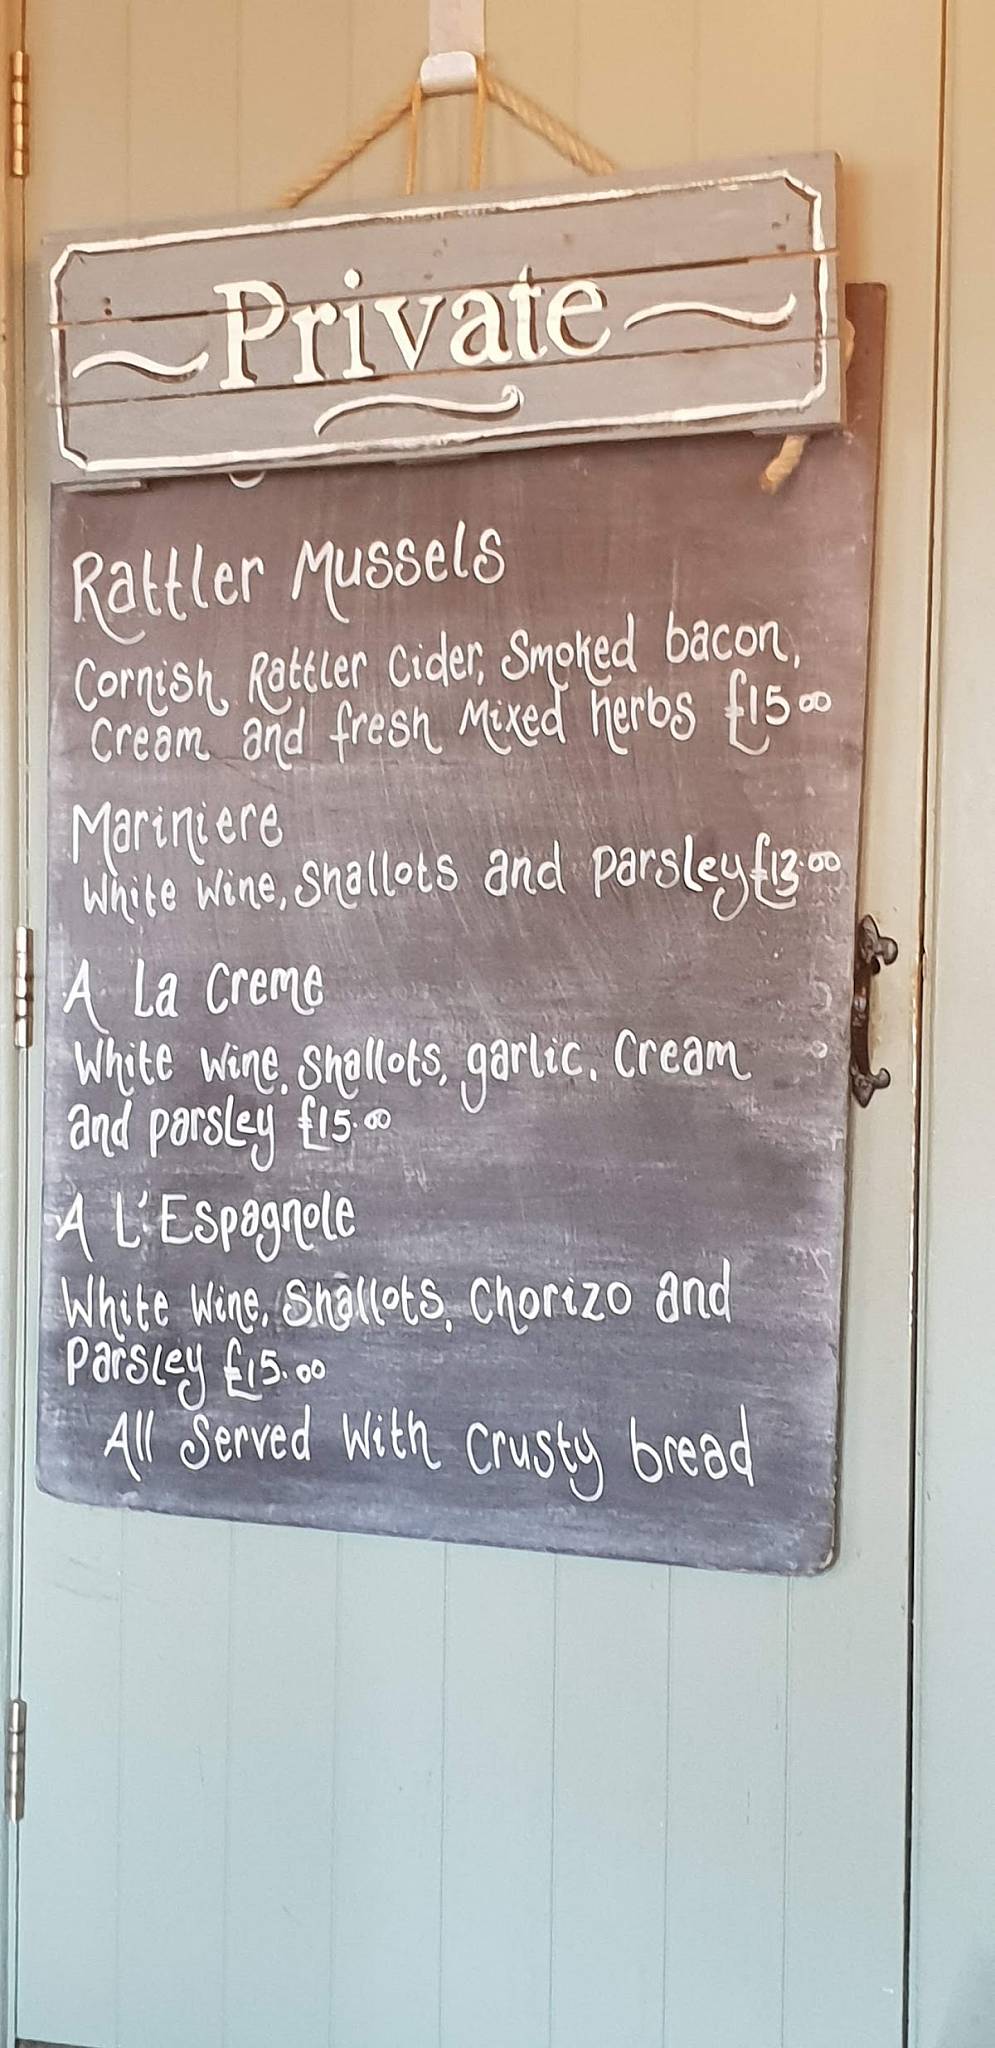 Private
Rattler Mussels
Cornish Rattler Cider, Smoked bacon,
Cream and fresh Mixed herbs £15.00
Mariniere
White Wine, Shallots and Parsley £13.00
A La Creme
White Wine, Shallots, garlic, Cream
and parsley £15.00
A L'Espagnole
White Wine, Shallots, Chorizo and
Parsley £15.00
All Served With Crusty bread